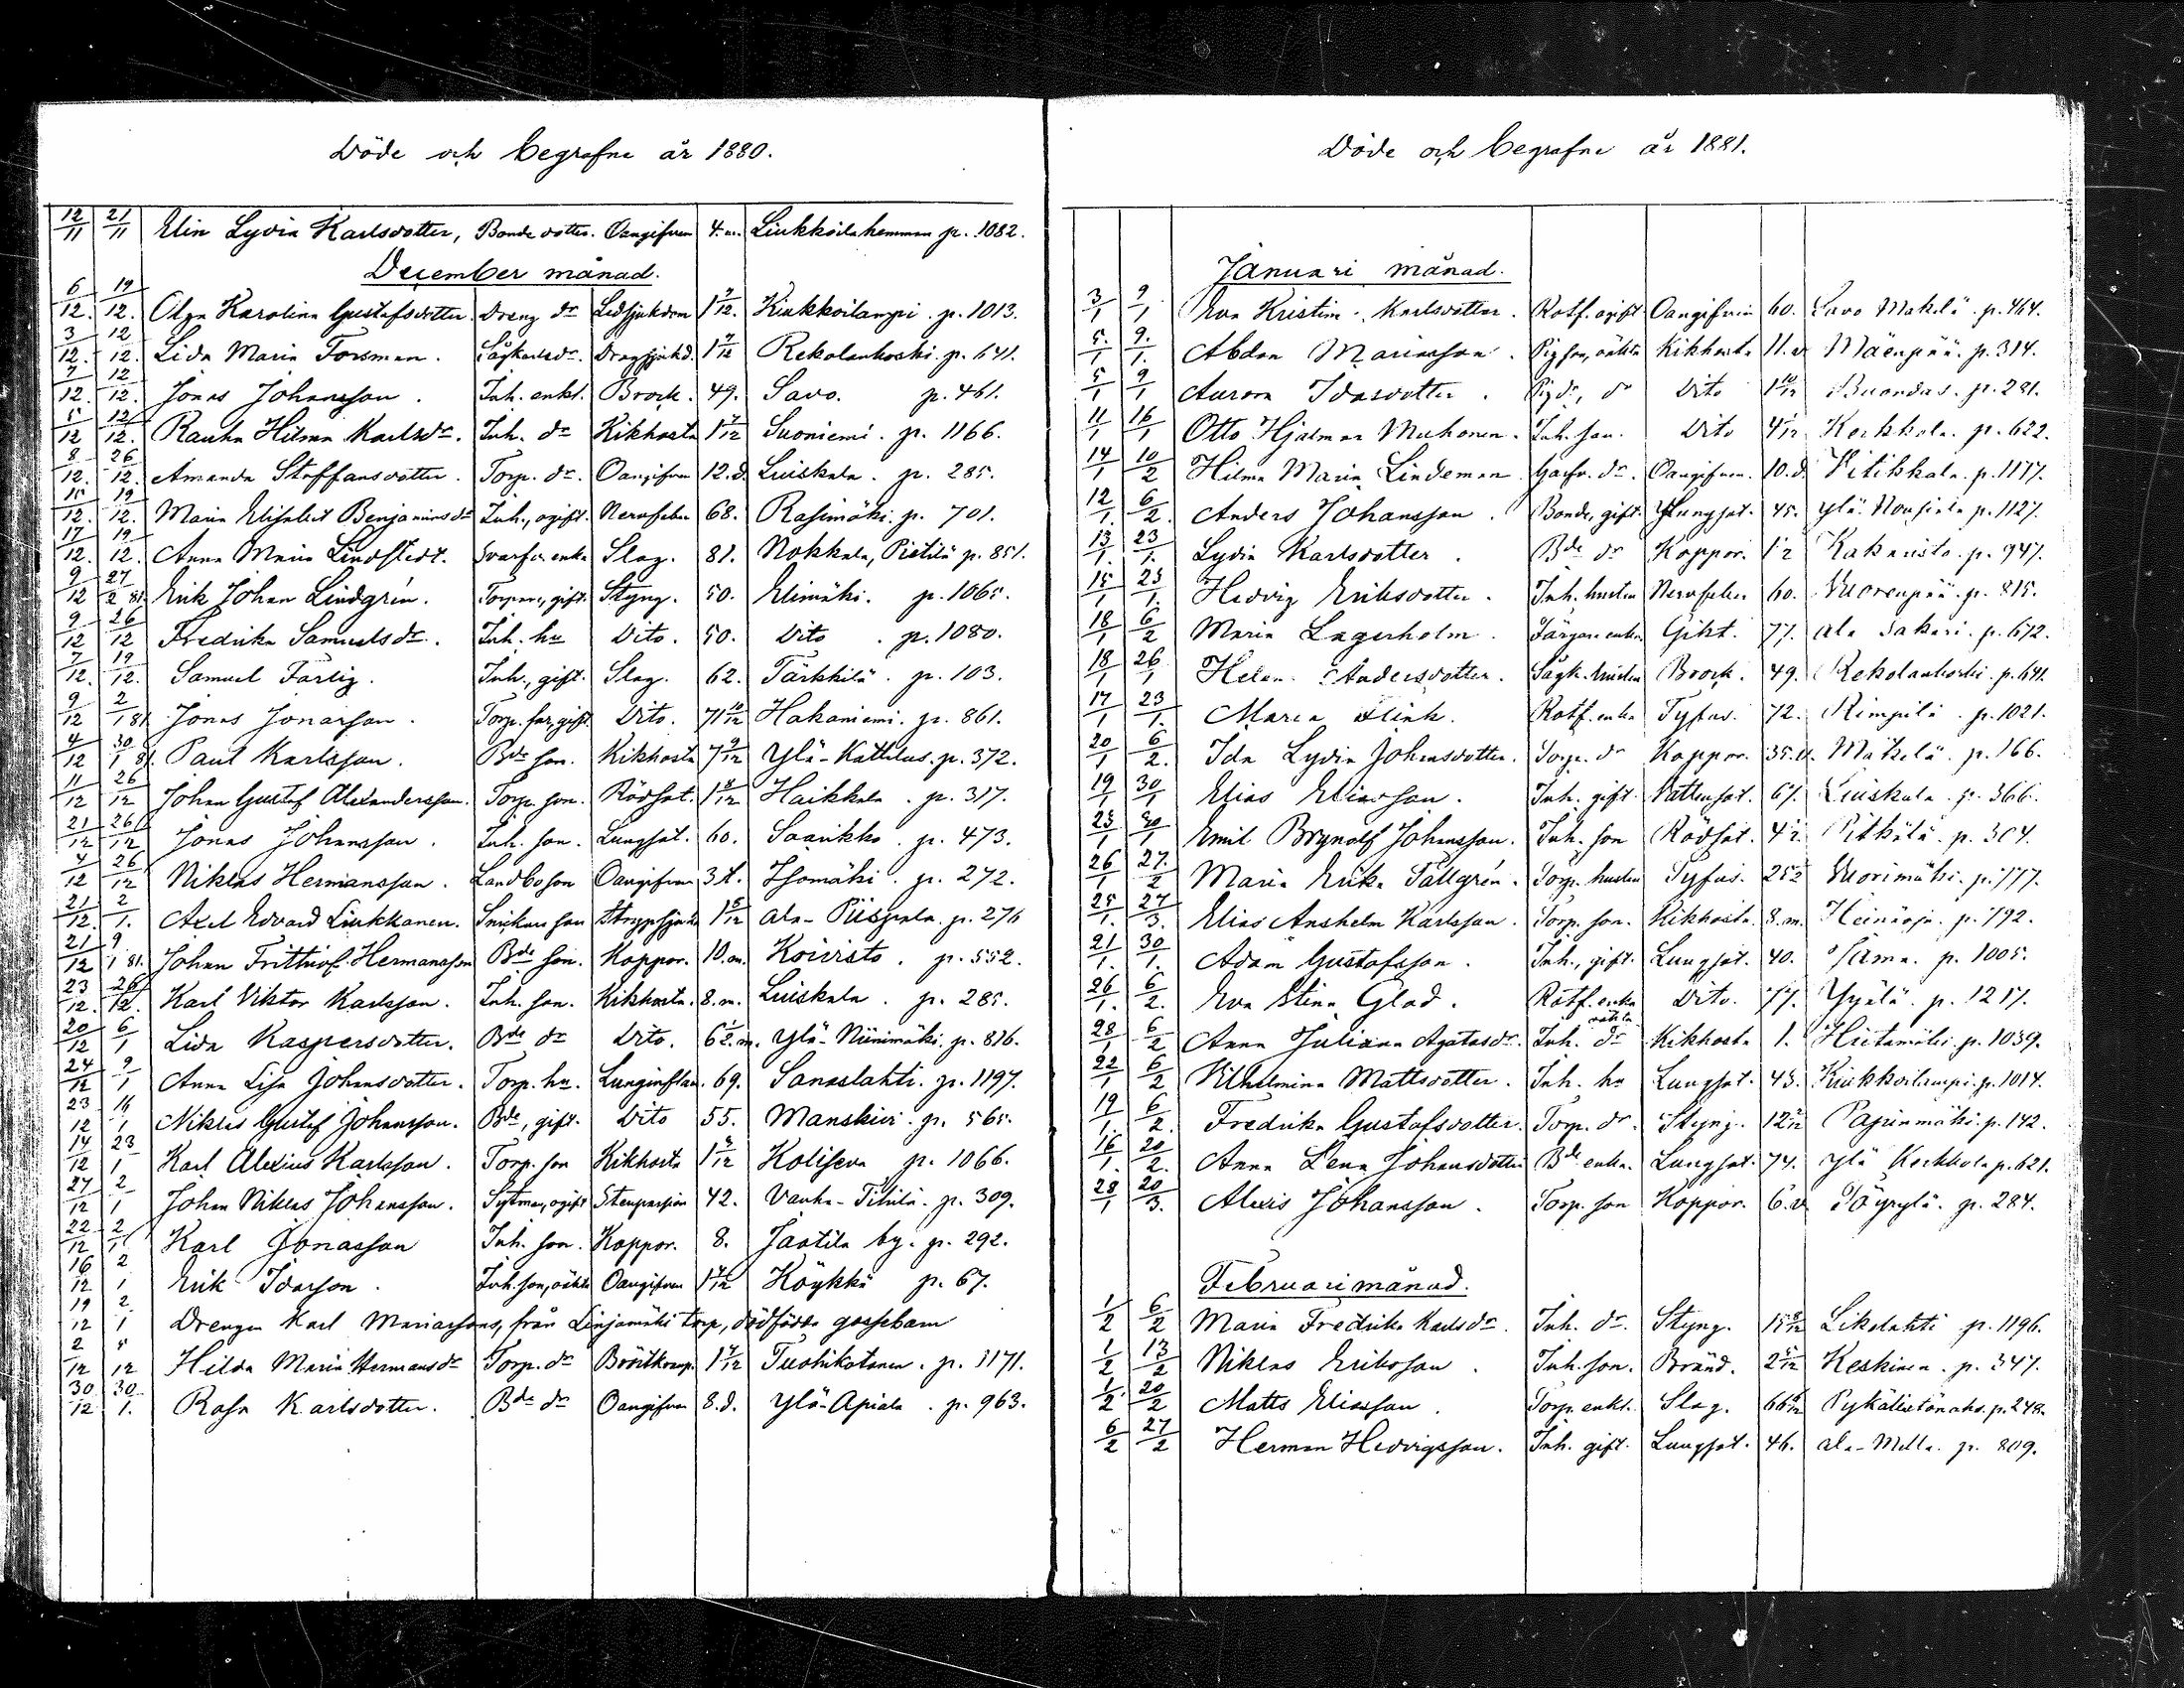 Döde och begrafne år 1880.
12/11 21/11 Elin Lydia Karlsdotter, Bonde dotter. Oangifven 4.m. Liukkoila hemman p. 1082.
December månad.
6/12. 19/12. Olga Karolina Gustafsdotter Dreng dr Ledsjukdom Kiukkoilampi. p. 1013.
3/12. 12/12. Lida Maria Forsman. Sågkarlsdr. Dragsjukd. Rekolankoski. p. 641.
7/12. 12/12. Jonas Johansson. Inh. enkl. Brock. 49. Savo. p. 461.
5/12 12/12. Rauha Hilma Karlsdr. Inh. dr Kikhosta Suoniemi. p. 1166.
8/12. 26/12. Amanda Staffansdotter. Torp. dr. Oangifven 12.d. Luiskala. p. 285.
15/12. 19/12. Maria Elisabet Benjaminsdr Inh., ogift. Nervfeber 68. Rasimäki. p. 701.
17/12. 19/12. Anna Maria Lindstedt. Svarfv. enka Slag. 81. Nokkala, Pietilä p. 851.
9/12 27/2 81. Erik Johan Lindgrén. Torpare, gift. Styng. 50. Elimäki. p. 1065.
9/12 26/12 Fredrika Samuelsdr. Inh. hu Dito. 50. Dito. p. 1080.
7/12. 19/12. Samuel Färlig. Inh., gift. Slag. 62. Tärkkilä. p. 103.
9/12 2/1 81. Jonas Jonasson. Torp. far, gift. Dito. 71 10/12 Hakaniemi. p. 861.
4/12 30/1 81. Paul Karlsson. Bde son. Kikhosta 7 9/12 Ylä-Kattelus. p. 372.
11/12 26/12 Johan Gustaf Alexandersson. Torp. son. Rödsot. Haikkala. p. 317.
21/12 26/12 Jonas Johansson. Inh. son. Lungsot. 60. Saarikko. p. 473.
4/12 26/12 Niklas Hermansson. Landbo son Oangifven 3.t. Isomäki. p. 272.
21/12. 2/1. Axel Edvard Liukkanen. Snickare son Strypsjuka 1 5/12 Ala-Piispala. p. 276
21/12 9/1 81. Johan Frithiof Hermansson Bde son. Koppor. 10.m. Koivisto. p. 552.
23/12. 26/12. Karl Viktor Karlsson. Inh. son. Kikhosta. 8.m. Luiskala. p. 285.
20/12 6/1 Lida Kaspersdotter. Bde dr Dito. 6 1/2.m. Ylä-Niinimäki. p. 836.
24/12 9/1 Anna Lisa Johansdotter. Torp. hu. Lunginflam. 69. Sanaslahti. p. 1197.
23/12 16/1 Niklas Gustaf Johansson. Bde, gift. Dito 55. Manskivi. p. 565.
14/12 23/1 Karl Alexius Karlsson. Torp. son Kikhosta Kolisева p. 1066.
27/12 2/1 Johan Niklas Johansson. Sytman, ogift Stenpassion 42. Vanha-Tihilä. p. 309.
22/12 2/1 Karl Jonasson Inh. son. Koppor. 8. Jaatila by. p. 292.
16/12 2/1 Erik Idasson. Inh. son, oäkta Oangifven Köykkä p. 67.
19/12 2/1 Drengen Karl Mariassons, från Linjamäki torp, dödfödda gossebarn
2/12 5/12 Hilda Maria Hermansdr Torp. dr Bröstkramp. Tuohikotanen. p. 1171.
30/12 30/1. Rosa Karlsdotter. Bde dr Oangifven 8.d. Ylä-Apiala. p. 963.
Döde och begrafne år 1881.
Januari månad.
3/1 9/1 Eva Kristina Karlsdotter. Rotf. ogift Oangifven 60. Savo Makelä. p. 464.
5./1 9./1. Abdon Mariasson. Pig son, oäkta Kikhosta 11.v. Mäenpää. p. 314.
5/1 9/1 Aurora Idasdotter. Pigdr, dr Dito 1 10/12 Buondas. p. 281.
11/1 16/1 Otto Hjalmar Muhonen. Inh. son. Dito Kerkkola. p. 622.
14/1 10/2 Hilma Maria Lindeman. Oangifven. 10.d. Vitikkala. p. 1177.
12/1. 6/2. Anders Johansson. Bonde, gift. Lungsot. 45. Ylä Nousiala p. 1127.
13/1. 23/1. Lydia Karlsdotter. Bde dr Koppor. 1/2 Kakaristo. p. 947.
15/1 23/1. Hedvig Eriksdotter. Inh. hustru Nervfeber 60. Vuorenpää. p. 815.
18/1 6/2 Maria Lagerholm. Färgare enka Gikt. 77. Ala Sakari. p. 672.
18/1 26/1 Helena Andersdotter. Sågk. hustru Brock. 49. Rekolankoski. p. 641.
17/1 23/1. Maria Flink. Rotf. enka Tyfus. 72. Rimpilä. p. 1021.
20/1 6/2. Ida Lydia Johansdotter. Torp. dr Koppor. Mäkelä. p. 166.
19/1 30/1 Elias Eliasson. Inh. gift. Vattensot. 67. Luiskala. p. 366.
23/1 30/1 Emil Brynolf Johansson. Inh. son Rödsot. 4 1/2. Pitkälä. p. 304.
26/1 27./2 Maria Erika Tallgrén. Torp. hustru Tyfus. 25 1/2 Vuorimäki. p. 777.
25/1. 27/3. Elias Anshelm Karlsson. Torp. son. Kikhosta. 8.m. Heinäoja. p. 792.
21/1. 30/1. Adam Gustafsson. Inh., gift. Lungsot. 40. Sama. p. 1005.
26/1. 6/2. Eva Stina Glad. Rotf. enka Dito. 77. Yijälä. p. 1217.
28/1 6/2 Anna Juliana Agatasdr. Inh. oäkta dr Kikhosta 1. Hiitamäki. p. 1039.
22/1 6/2 Vilhelmina Mattsdotter. Inh. hu Lungsot. 43. Kiukkoilampi. p. 1014.
19/1. 6/2. Fredrika Gustafsdotter. Torp. dr. Styng. Papinmäki. p. 142.
16/1. 20/2. Anna Lena Johansdotter Bde enka. Lungsot. 74. Ylä Kerkkola p. 621.
28/1 20/3. Alexis Johansson. Torp. son Koppor. 6.v. Töyrylä. p. 284.
Februari månad.
1/2 6/2 Maria Fredrika Karlsdr. Inh. dr. Styng. Likolahti p. 1196.
1/2 13/2 Niklas Eriksson. Inh. son. Bränd. Keskinen. p. 347.
1/2. 20/2 Matts Eliasson. Torp. enkl. Slag. p. 248.
6/2 27/2 Herman Hedvigsson. Inh. gift. Lungsot. 46. Ala-Mella. p. 809.